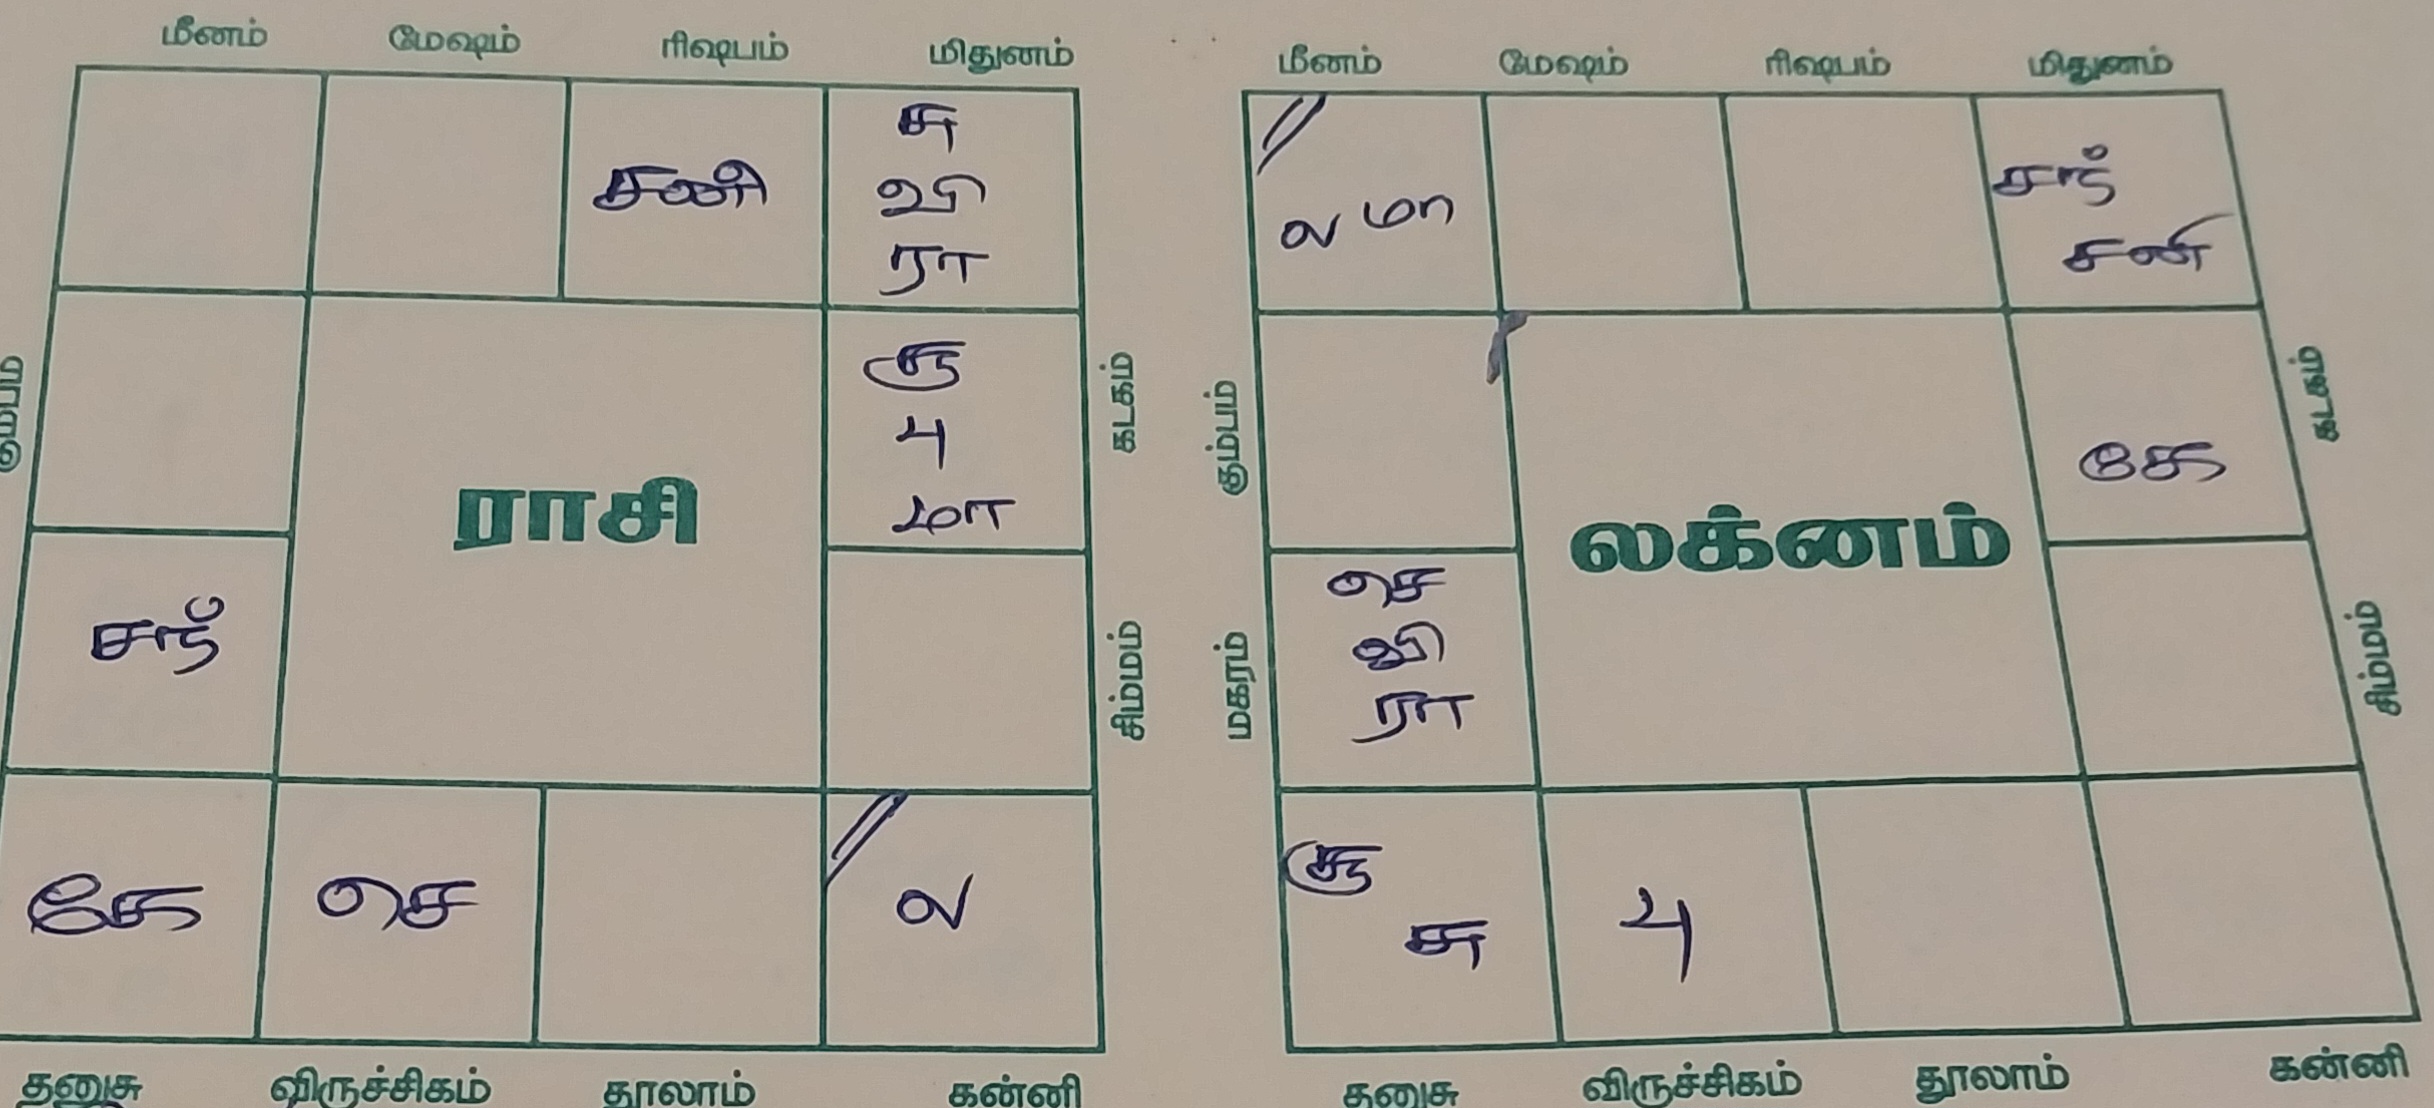 மீனம் மேஷம் ரிஷபம் மிதுனம்
சனி
சு
வி
ரா
கும்பம்
கு
பு
மா
கடகம்
ராசி
சந்
சிம்மம்
கே
செ
ல
தனுசு விருச்சிகம் தூலாம் கன்னி
மீனம் மேஷம் ரிஷபம் மிதுனம்
ல மா
சந்
சனி
கும்பம்
கே
கடகம்
லக்னம்
மகரம்
செ
வி
ரா
சிம்மம்
கு
சு
பு
தனுசு விருச்சிகம் தூலாம் கன்னி